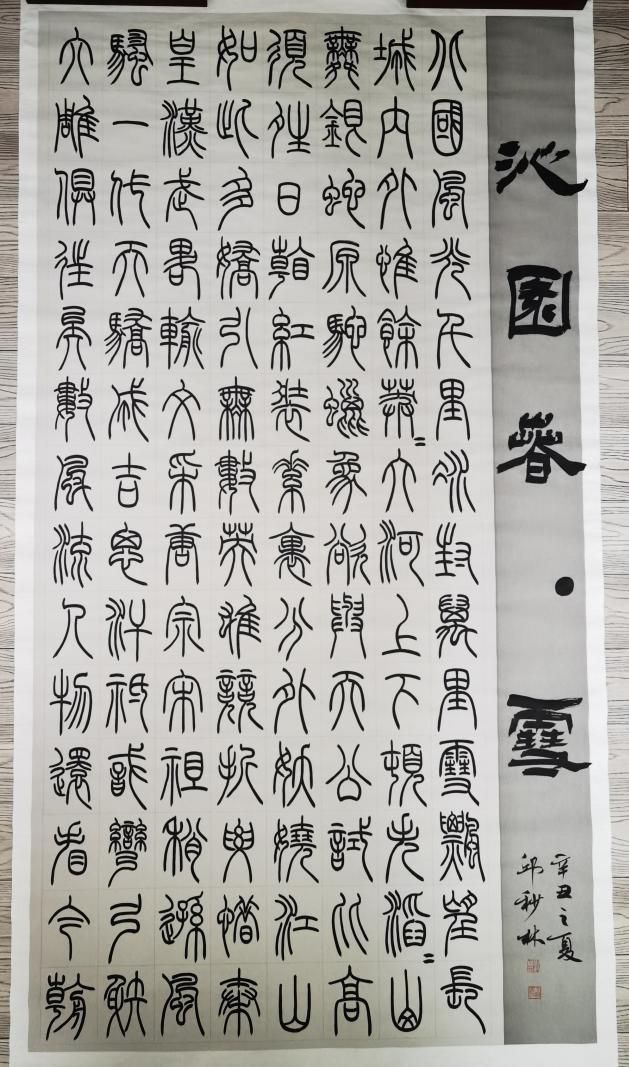 沁園春·雪
辛丑之夏
邱秒林
北國風光千里冰封萬里雪飄望長
城內外惟餘莽=大河上下頓失滔=山
舞銀蛇原馳蠟象欲與天公試比高
須晴日看紅裝素裹分外妖嬈江山
如此多嬌引無數英雄競折要惜秦
皇漢武略輸文采唐宗宋祖稍遜風
騷一代天驕成吉思汗祇識彎弓射
大雕俱往矣數風流人物還看今朝